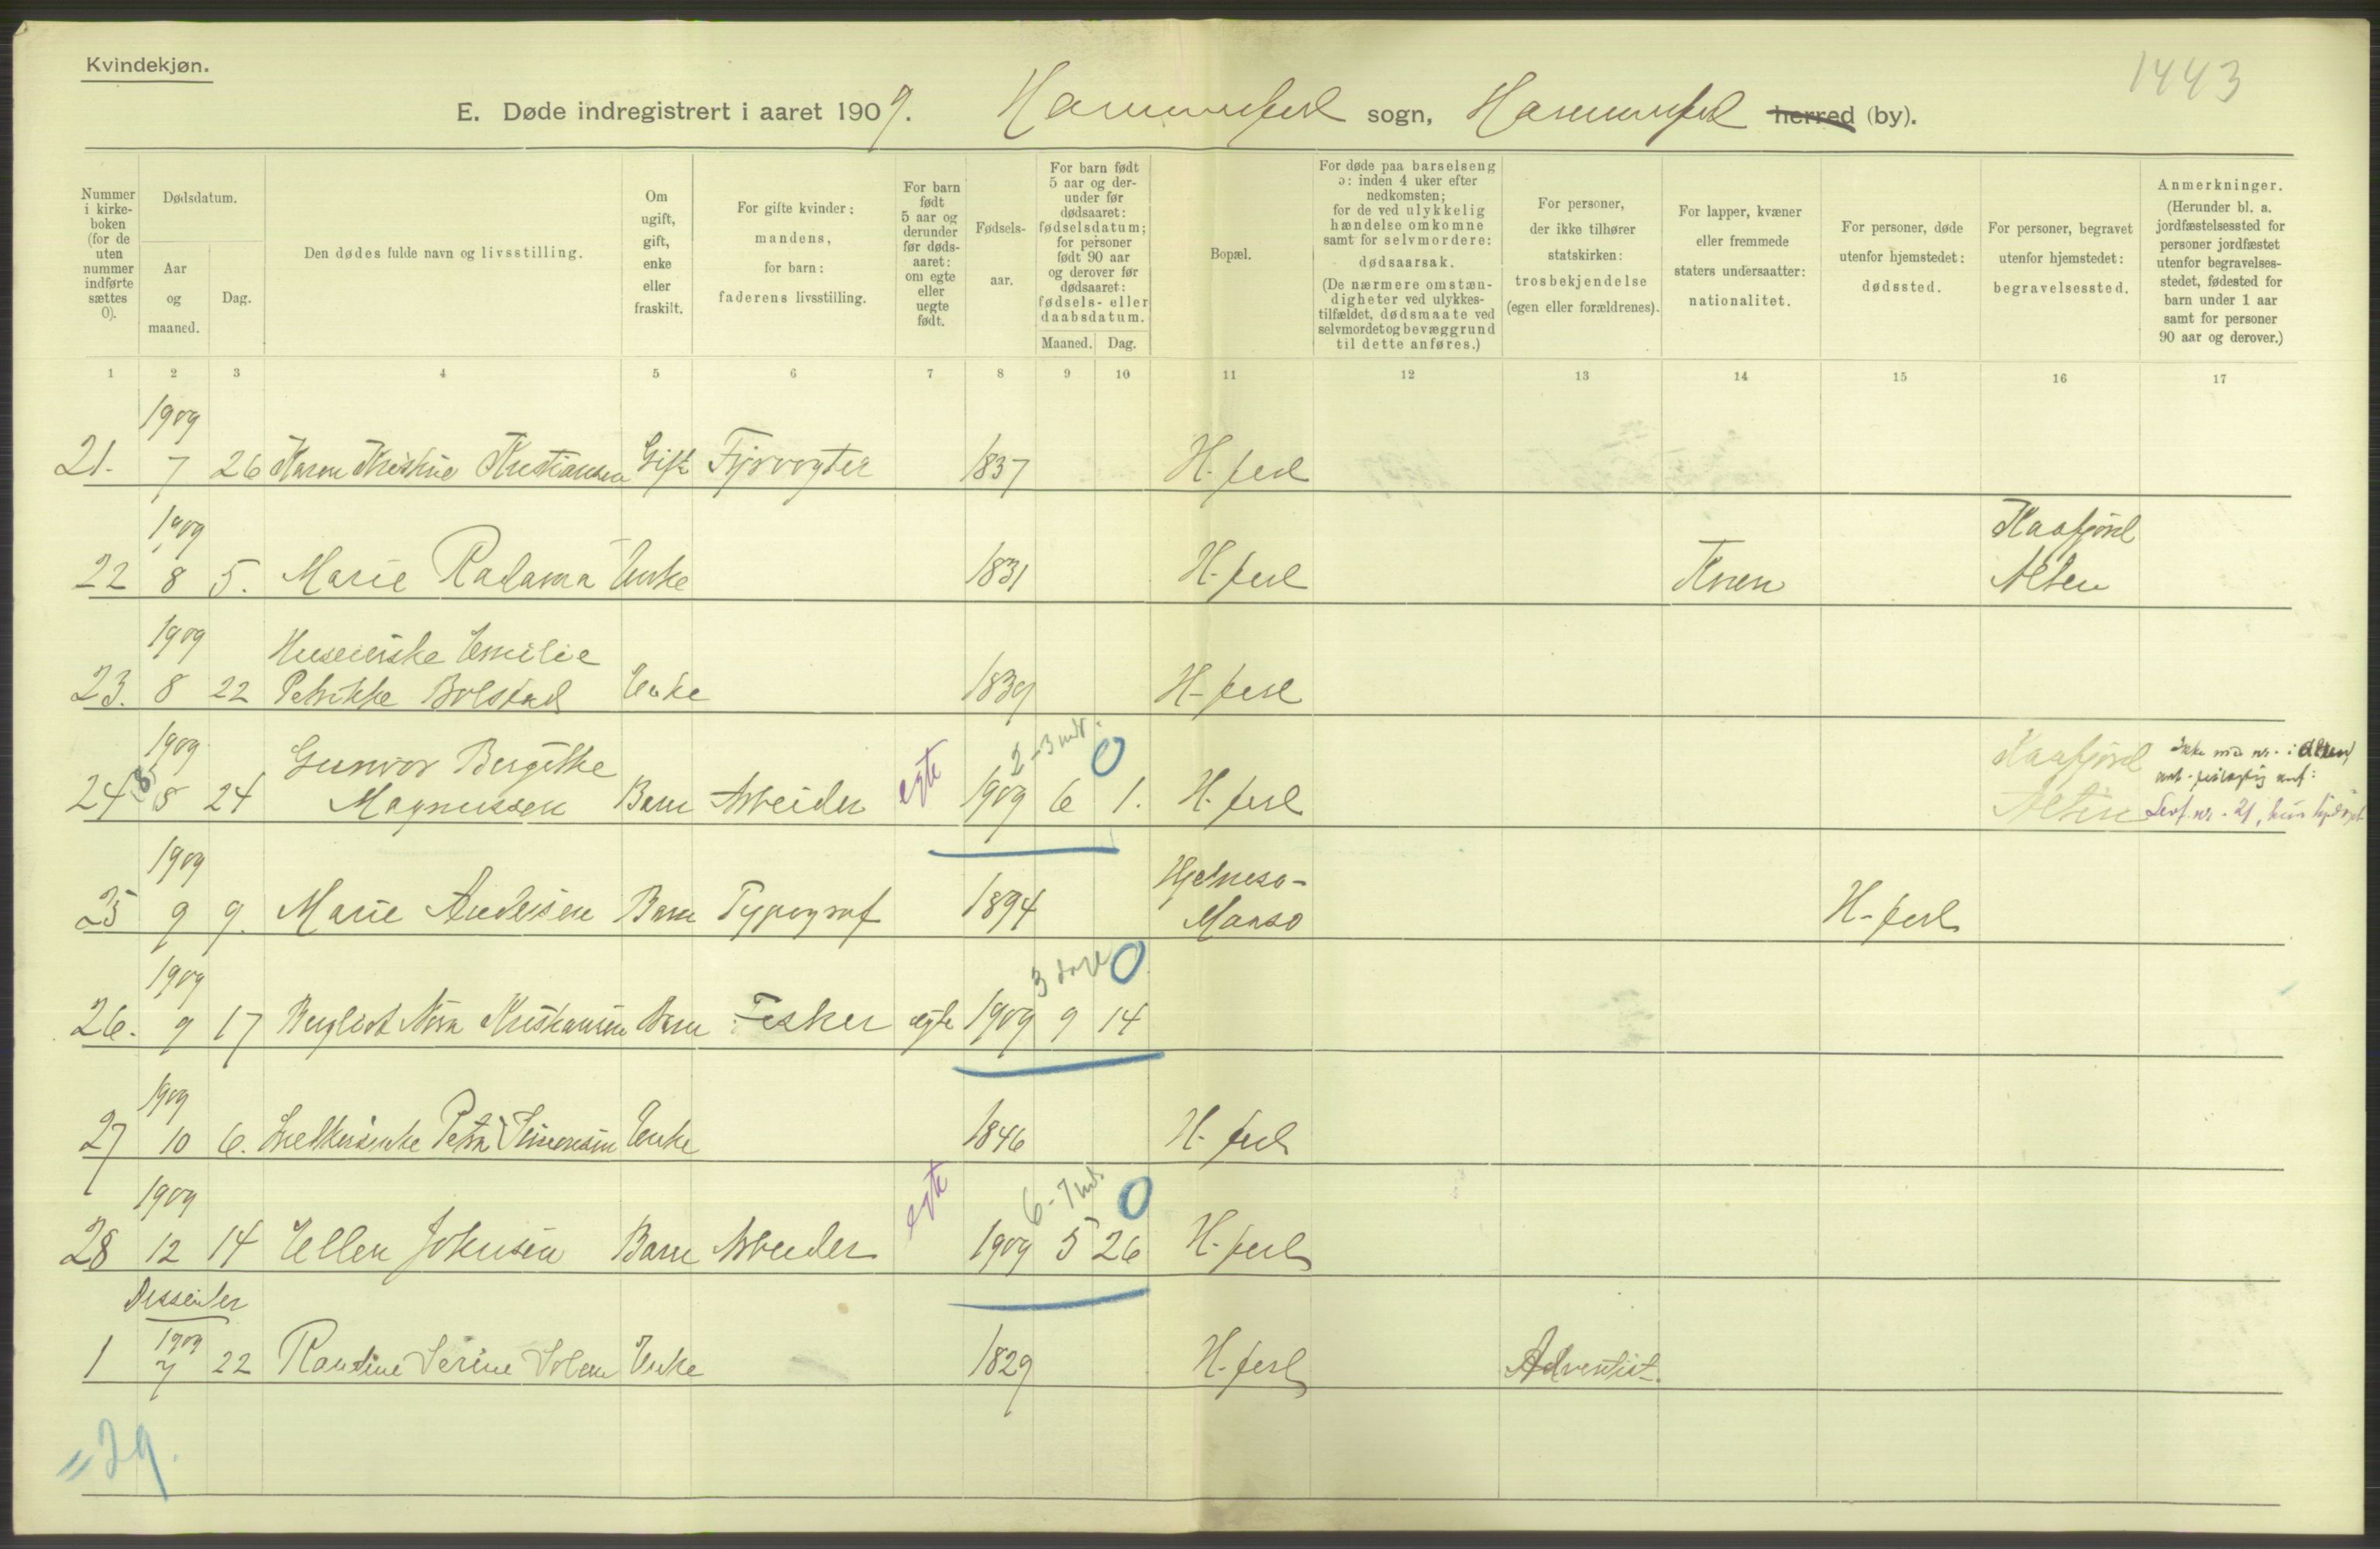 Kvindekjøn.
1443
E. Døde indregistrert i aaret 1909. Hammerfest sogn, Hammerfest herred (by).
Nummer i kirkeboken (for de uten nummer indførte sættes 0).
Dødsdatum.
Aar og maaned.
Dag.
Den dødes fulde navn og livsstilling.
Om ugift, gift, enke eller fraskilt.
For gifte kvinder: mandens, for barn: faderens livsstilling.
For barn født 5 aar og derunder før dødsaaret: om egte eller uegte født.
Fødselsaar.
For barn født 5 aar og derunder før dødsaaret: fødselsdatum; for personer født 90 aar og derover før dødsaaret: fødsels- eller daabsdatum.
Maaned. Dag.
Bopæl.
For døde paa barselseng ɔ: inden 4 uker efter nedkomsten; for de ved ulykkelig hændelse omkomne samt for selvmordere: dødsaarsak. (De nærmere omstændigheter ved ulykkestilfældet, dødsmaate ved selvmordet og bevæggrund til dette anføres.)
For personer, der ikke tilhører statskirken: trosbekjendelse (egen eller forældrenes).
For lapper, kvæner eller fremmede staters undersaatter: nationalitet.
For personer, døde utenfor hjemstedet: dødssted.
For personer, begravet utenfor hjemstedet: begravelsessted.
Anmerkninger. (Herunder bl. a. jordfæstelsessted for personer jordfæstet utenfor begravelsesstedet, fødested for barn under 1 aar samt for personer 90 aar og derover.)
1 2 3 4 5 6 7 8 9 10 11 12 13 14 15 16 17
1909
21. 7 26 Karen Kristine Kristiansen Gift Fyrvogter 1837 H-fest
1909 Kaafjord
22 8 5. Marie Radama Enke 1831 H-fest Kven Alten
1909 Huseierske Emilie
23. 8 22 Petrikke Bolstad Enke 1839 H-fest
1909 Gunvor Bergitke 2-3 mdr. 0 Kaafjord
24 8 24 Magnussen Barn Arbeider egte 1909 6 1. H-fest Alten
1909 Hjelmesø-
25 9 9. Marie Andersen Barn Typograf 1894 Maasø H-fest
1909 3 dage 0
26. 9 17 Bergliot Nora Kristiansen Barn Fisker egte 1909 9 14
1909
27 10 6. Petra Simonsen Enke 1846 H-fest
1909 6-7 mdr 0
28 12 14 Ellen Johnsen Barn Arbeider egte 1909 5 26 H-fest
Dissenter
1909
1 7 22 Randine Serine Solem Enke 1829 H-fest Adventist.
=29.